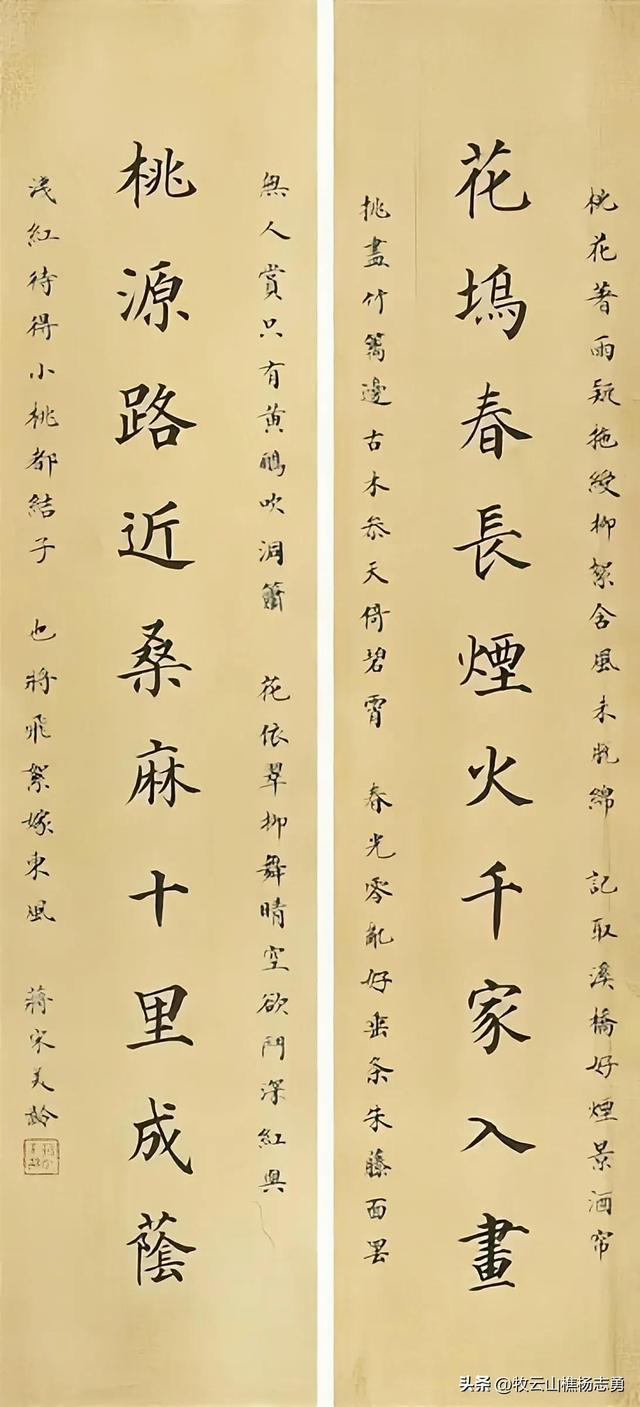 桃花著雨疑拖綬柳絮含風未脫綿 記取溪橋好煙景酒帘
花塢春長煙火千家入畫
挑盡竹篱邊古木參天倚碧霄 春光零亂好垂条朱藤面罢
無人賞只有黃鸝吹洞簫 花依翠柳舞晴空欲鬥深紅與
桃源路近桑麻十里成蔭
淺紅待得小桃都結子 也將飛絮嫁東風 蔣宋美齡
头条 @牧云山樵杨志勇